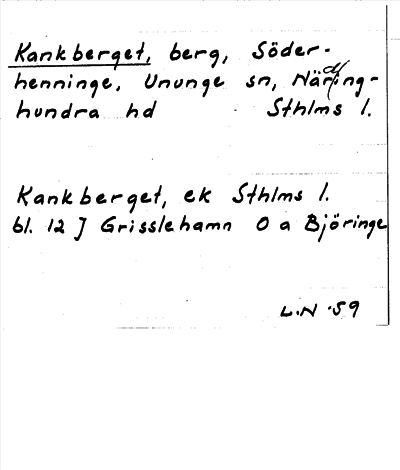 Kankberget, berg, Söder-
henninge, Ununge sn, Närding-
hundra hd Sthlms l.
Kankberget, ek Sthlms l.
bl. 12 J Grisslehamn O a Björinge
L.N -59